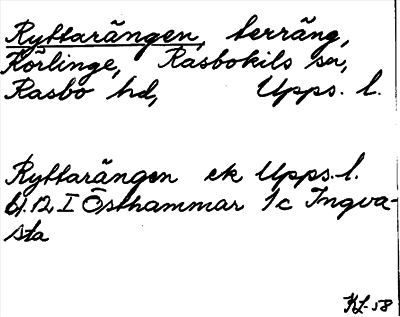 Ryttarängen, terräng,
Körlinge, Rasbokils sn,
Rasbo hd, Upps. l.
Ryttarängen ek Upps. l.
bl. 12 I Östhammar 1c Ingva-
sta
KL-58